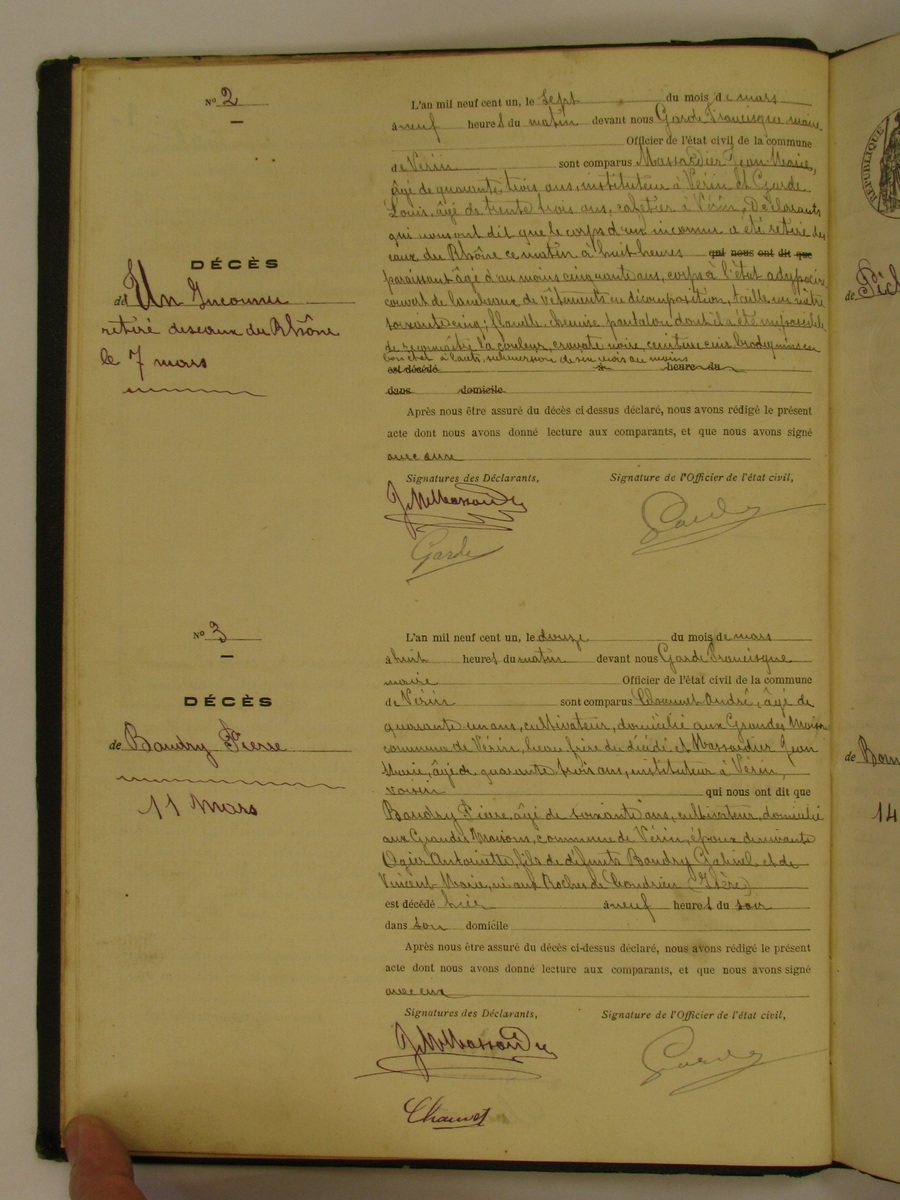 N° 2
DÉCÈS
d'Un Inconnu
retiré des eaux du Rhône
le 7 mars
L'an mil neuf cent un, le sept du mois de mars
à neuf heures du matin devant nous Garde Francisque maire
Officier de l'état civil de la commune
de Vérin sont comparus Massardier Jean Marie,
âgé de quarante trois ans, instituteur à Vérin et Garde
Louis, âgé de trente trois ans, cafetier à Vérin, Déclarants
qui nous ont dit que le corps d'un inconnu a été retiré des
eaux du Rhône ce matin à huit heures qui nous ont dit que
paraissant âgé d'au moins cinquante ans, corps à l'état adypocire
couvert de lambeaux de vêtments en décomposition, taille un mètre
soixante cinq; flanelle, chemise pantalon dont il a été impossible
de reconnaître la couleur, cravate noire, ceinture cuir brodequins en
bon état à lacets, submersion de six mois au moins
est décédé à heure du
dans domicile
Après nous être assuré du décès ci-dessus déclaré, nous avons rédigé le présent
acte dont nous avons donné lecture aux comparants, et que nous avons signé
avec eux
Signatures des Déclarants, Signature de l'Officier de l'état civil,
J M Massardier
Garde
Garde
N° 3
DÉCÈS
de Baudry Pierre
11 Mars
L'an mil neuf cent un, le douze du mois de mars
à huit heures du matin devant nous Garde Francisque
maire Officier de l'état civil de la commune
de Vérin sont comparus Chauvet André, âgé de
quarante un ans, cultivateur, domicilié aux Grandes Maisons
commune de Vérin, beau frère du décédé et Massardier Jean
Marie, âgé de quarante trois ans, instituteur à Vérin,
voisin qui nous ont dit que
Baudry Pierre, âgé de soixante ans, cultivateur, domicilié
aux Grandes Maisons, commune de Vérin, époux de vivante
Ogier Antoinette, fils de défunts Baudry Gabriel et de
Vincent Marie, né aux Roches de Condrieu (Isère)
est décédé hier à neuf heures du soir
dans son domicile
Après nous être assuré du décès ci-dessus déclaré, nous avons rédigé le présent
acte dont nous avons donné lecture aux comparants, et que nous avons signé
avec eux
Signatures des Déclarants, Signature de l'Officier de l'état civil,
J M Massardier
Garde
Chauvet
RÉPUBLIQUE
de
de
14